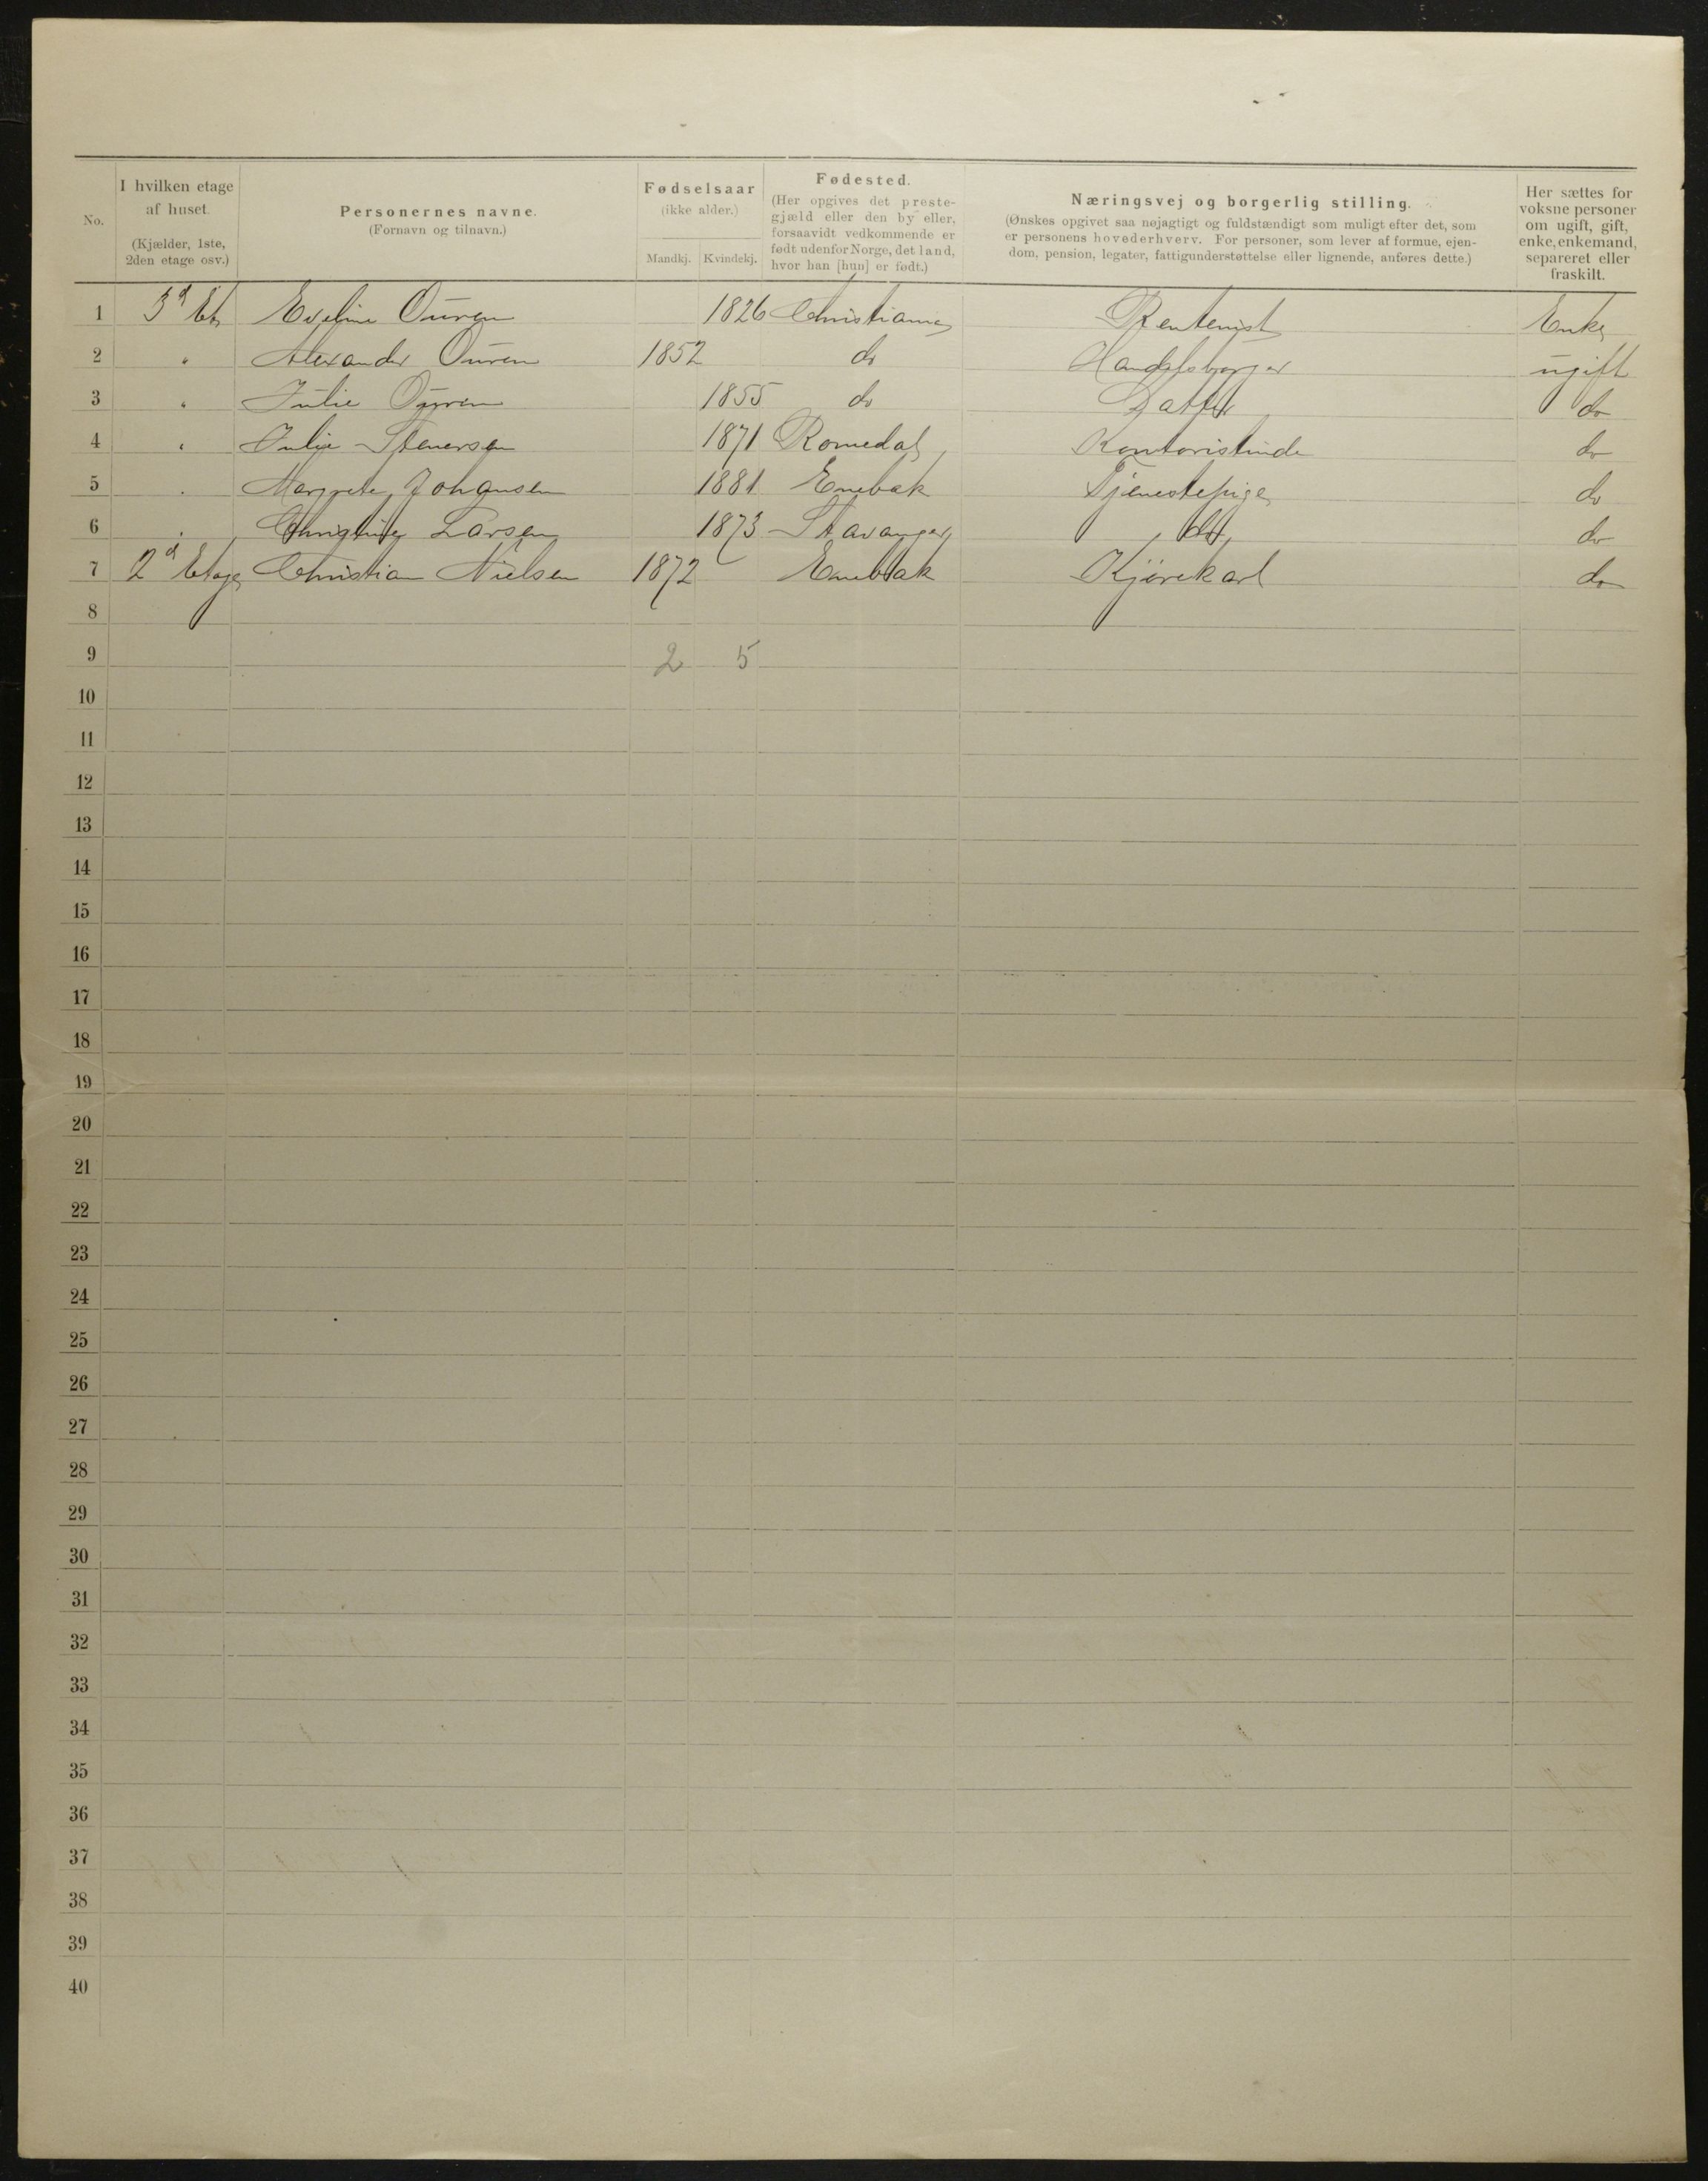 No.
I hvilken etage af huset. (Kjælder, 1ste, 2den etage osv.)
Personernes navne. (Fornavn og tilnavn.)
Fødselsaar (ikke alder.) Mandkj. Kvindekj.
Fødested. (Her opgives det prestegjæld eller den by eller, forsaavidt vedkommende er født udenfor Norge, det land, hvor han [hun] er født.)
Næringsvej og borgerlig stilling. (Ønskes opgivet saa nøjagtigt og fuldstændigt som muligt efter det, som er personens hovederhverv. For personer, som lever af formue, ejendom, pension, legater, fattigunderstøttelse eller lignende, anføres dette.)
Her sættes for voksne personer om ugift, gift, enke, enkemand, separeret eller fraskilt.
1 3d Et. Eveline Ouren 1826 Christiania Rentenist Enke
2 " Alexander Ouren 1852 do Handelsborger ugift
3 " Julie Ouren 1855 do Datter do
4 " Julie Stenersen 1871 Romedal Kontoristinde do
5 " Margrete Johansen 1881 Enebak Tjenestepige do
6 " Christine Larsen 1873 Stavanger do do
7 2d Etage Christian Nielsen 1872 Enebak Kjørekarl do
8
9 2 5
10
11
12
13
14
15
16
17
18
19
20
21
22
23
24
25
26
27
28
29
30
31
32
33
34
35
36
37
38
39
40